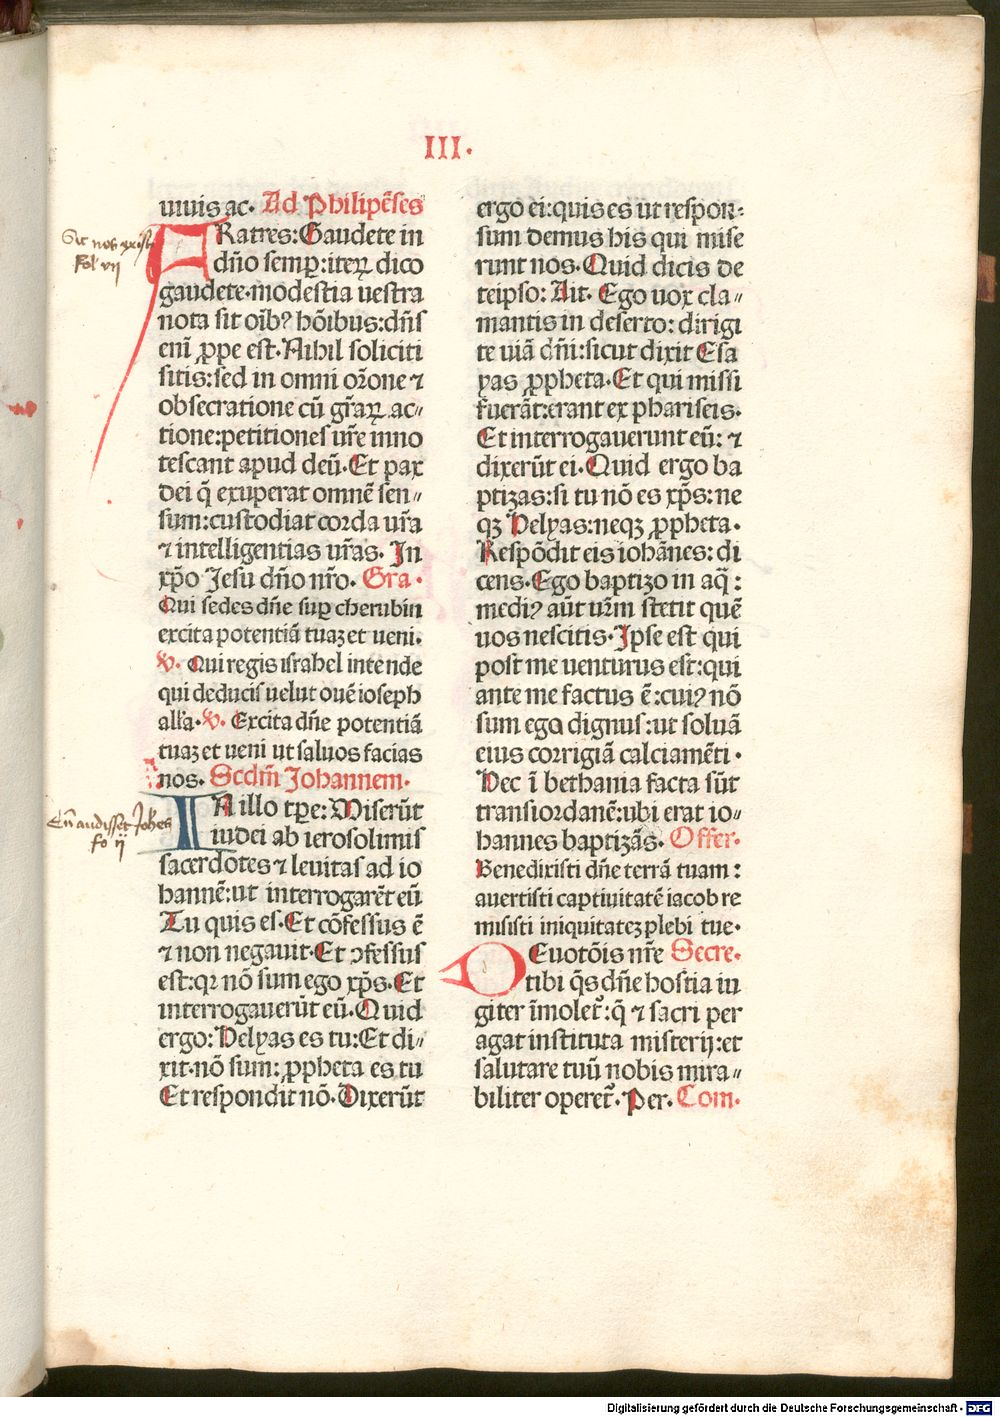 III.
uiuis ac. Ad Philipēses
FRatres: Gaudete in
dño semp̱: iteꝝ dico
gaudete. modestia uestra
nota sit oībꝰ hōibus: dñs
enī ꝓpe est. Nihil soliciti
sitis: sed in omni or̄one ⁊
obsecratione cū gr̄aꝝ ac〃
tione: petitiones ur̄e inno
tescant apud deū. Et pax
dei q̄ exuperat omnē sen〃
sum: custodiat corda ur̄a
⁊ intelligentias ur̄as. In
xp̄o Jesu dño nr̄o. Gra.
Qui sedes dñe sup̱ cherubin
excita potentiā tuaꝫ et ueni.
V. Qui regis israhel intende
qui deducis uelut ouē ioseph
all'a. V. Excita dñe potentiā
tuaꝫ et ueni ut saluos facias
nos. Scdm̄ Johannem.
IN illo tp̄e: Miserūt
iudei ab ierosolimis
sacerdotes ⁊ leuitas ad io
hannē: ut interrogarēt eū
Tu quis es. Et cōfessus ē
⁊ non negauit. Et ɔfessus
est: qꝛ nō sum ego xp̄s. Et
interrogauerūt eū. Quid
ergo: Helyas es tu: Et di〃
xit. nō sum: ꝓpheta es tu
Et respondit nō. Dixerūt
ergo ei: quis es ut respon⸗
sum demus his qui mise
runt nos. Quid dicis de
teipso: Ait. Ego uox cla〃
mantis in deserto: dirigi
te uiā dñi: sicut dixit Esa
yas ꝓpheta. Et qui missi
fuerāt: erant ex phariseis.
Et interrogauerunt eū: ⁊
dixerūt ei. Quid ergo ba
ptizas: si tu nō es xp̄s: ne
qꝫ Helyas: neqꝫ ꝓpheta.
Respōdit eis iohānes: di
cens. Ego baptizo in aq̄:
mediꝰ aūt ur̄m stetit quē
uos nescitis. Ipse est qui
post me uenturus est: qui
ante me factus ē: cuiꝰ nō
sum ego dignus: ut soluā
eius corrigiā calciamēti.
Hec ī bethania facta sūt
transiordanē: ubi erat io〃
hannes baptizās. Offer.
Benedixisti dñe terrā tuam:
auertisti captiuitatē iacob re
misisti iniquitateꝫ plebi tue.
DEuotōis nr̄e Secre.
tibi q̄s dñe hostia iu
giter īmolet᷑: q̄ ⁊ sacri per
agat instituta misterij: et
salutare tuū nobis mira〃
biliter operet᷑. Per. Com.
Sic nos existi
fol vij
Cū audisset Joh̄es
fo ij
Digitalisierung gefördert durch die Deutsche Forschungsgemeinschaft - DFG